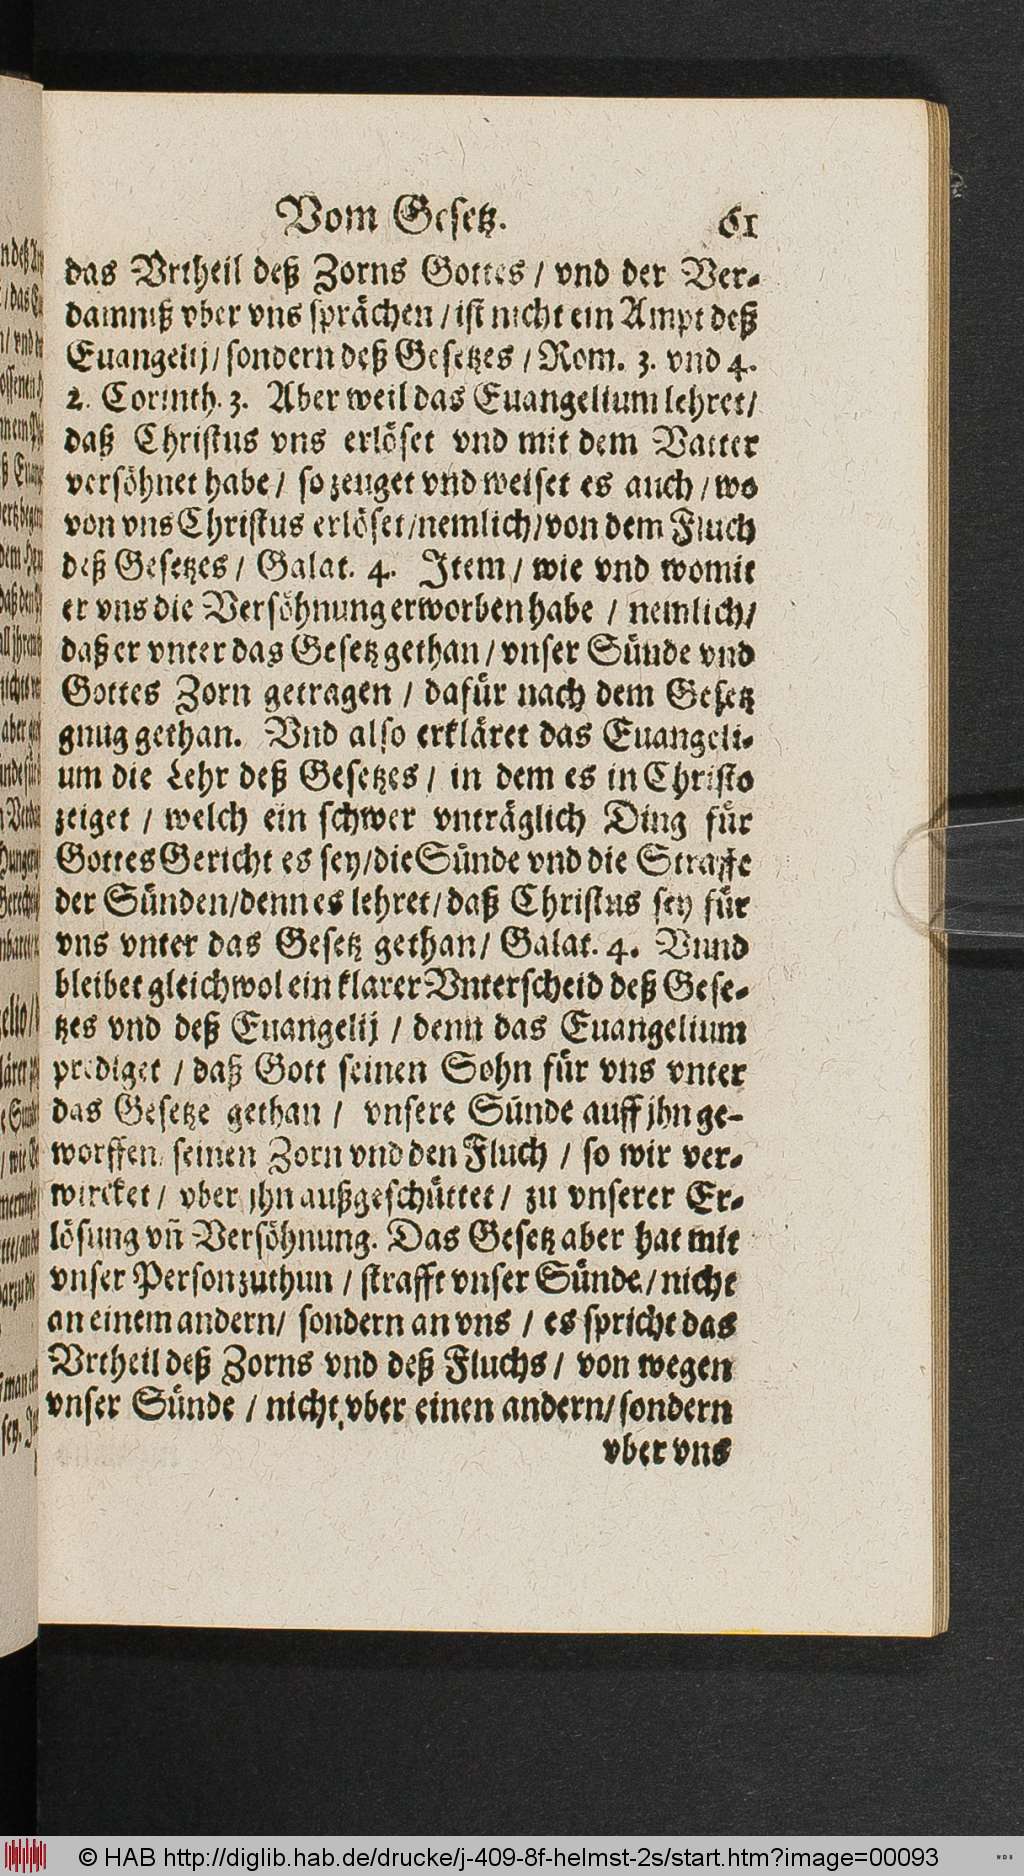 Vom Gesetz. 61
das Vrtheil deß Zorns Gottes / vnd der Ver-
damniß vber vns sprächen / ist nicht ein Ampt deß
Euangelij / sondern deß Gesetzes / Rom. 3. vnd 4.
2. Corinth. 3. Aber weil das Euangelium lehret /
daß Christus vns erlöset vnd mit dem Vatter
versöhnet habe / so zeuget vnd weiset es auch / wo
von vns Christus erlöset / nemlich / von dem Fluch
deß Gesetzes / Galat. 4. Item / wie vnd womit
er vns die Versöhnung erworben habe / nemlich /
daß er vnter das Gesetz gethan / vnser Sünde vnd
Gottes Zorn getragen / dafür nach dem Gesetz
gnug gethan. Vnd also erkläret das Euangeli-
um die Lehr deß Gesetzes / in dem es in Christo
zeiget / welch ein schwer vnträglich Ding für
Gottes Gericht es sey / die Sünde vnd die Straffe
der Sünden / denn es lehret / daß Christus sey für
vns vnter das Gesetz gethan / Galat. 4. Vnnd
bleibet gleichwol ein klarer Vnterscheid deß Gese-
tzes vnd deß Euangelij / denn das Euangelium
prediget / daß Gott seinen Sohn für vns vnter
das Gesetze gethan / vnsere Sünde auff jhn ge-
worffen / seinen Zorn vnd den Fluch / so wir ver-
wircket / vber jhn außgeschüttet / zu vnserer Er-
lösung vñ Versöhnung. Das Gesetz aber hat mit
vnser Person zuthun / strafft vnser Sünde / nicht
an einem andern / sondern an vns / es spricht das
Vrtheil deß Zorns vnd deß Fluchs / von wegen
vnser Sünde / nicht vber einen andern / sondern
vber vns
© HAB http://diglib.hab.de/drucke/j-409-8f-helmst-2s/start.htm?image=00093